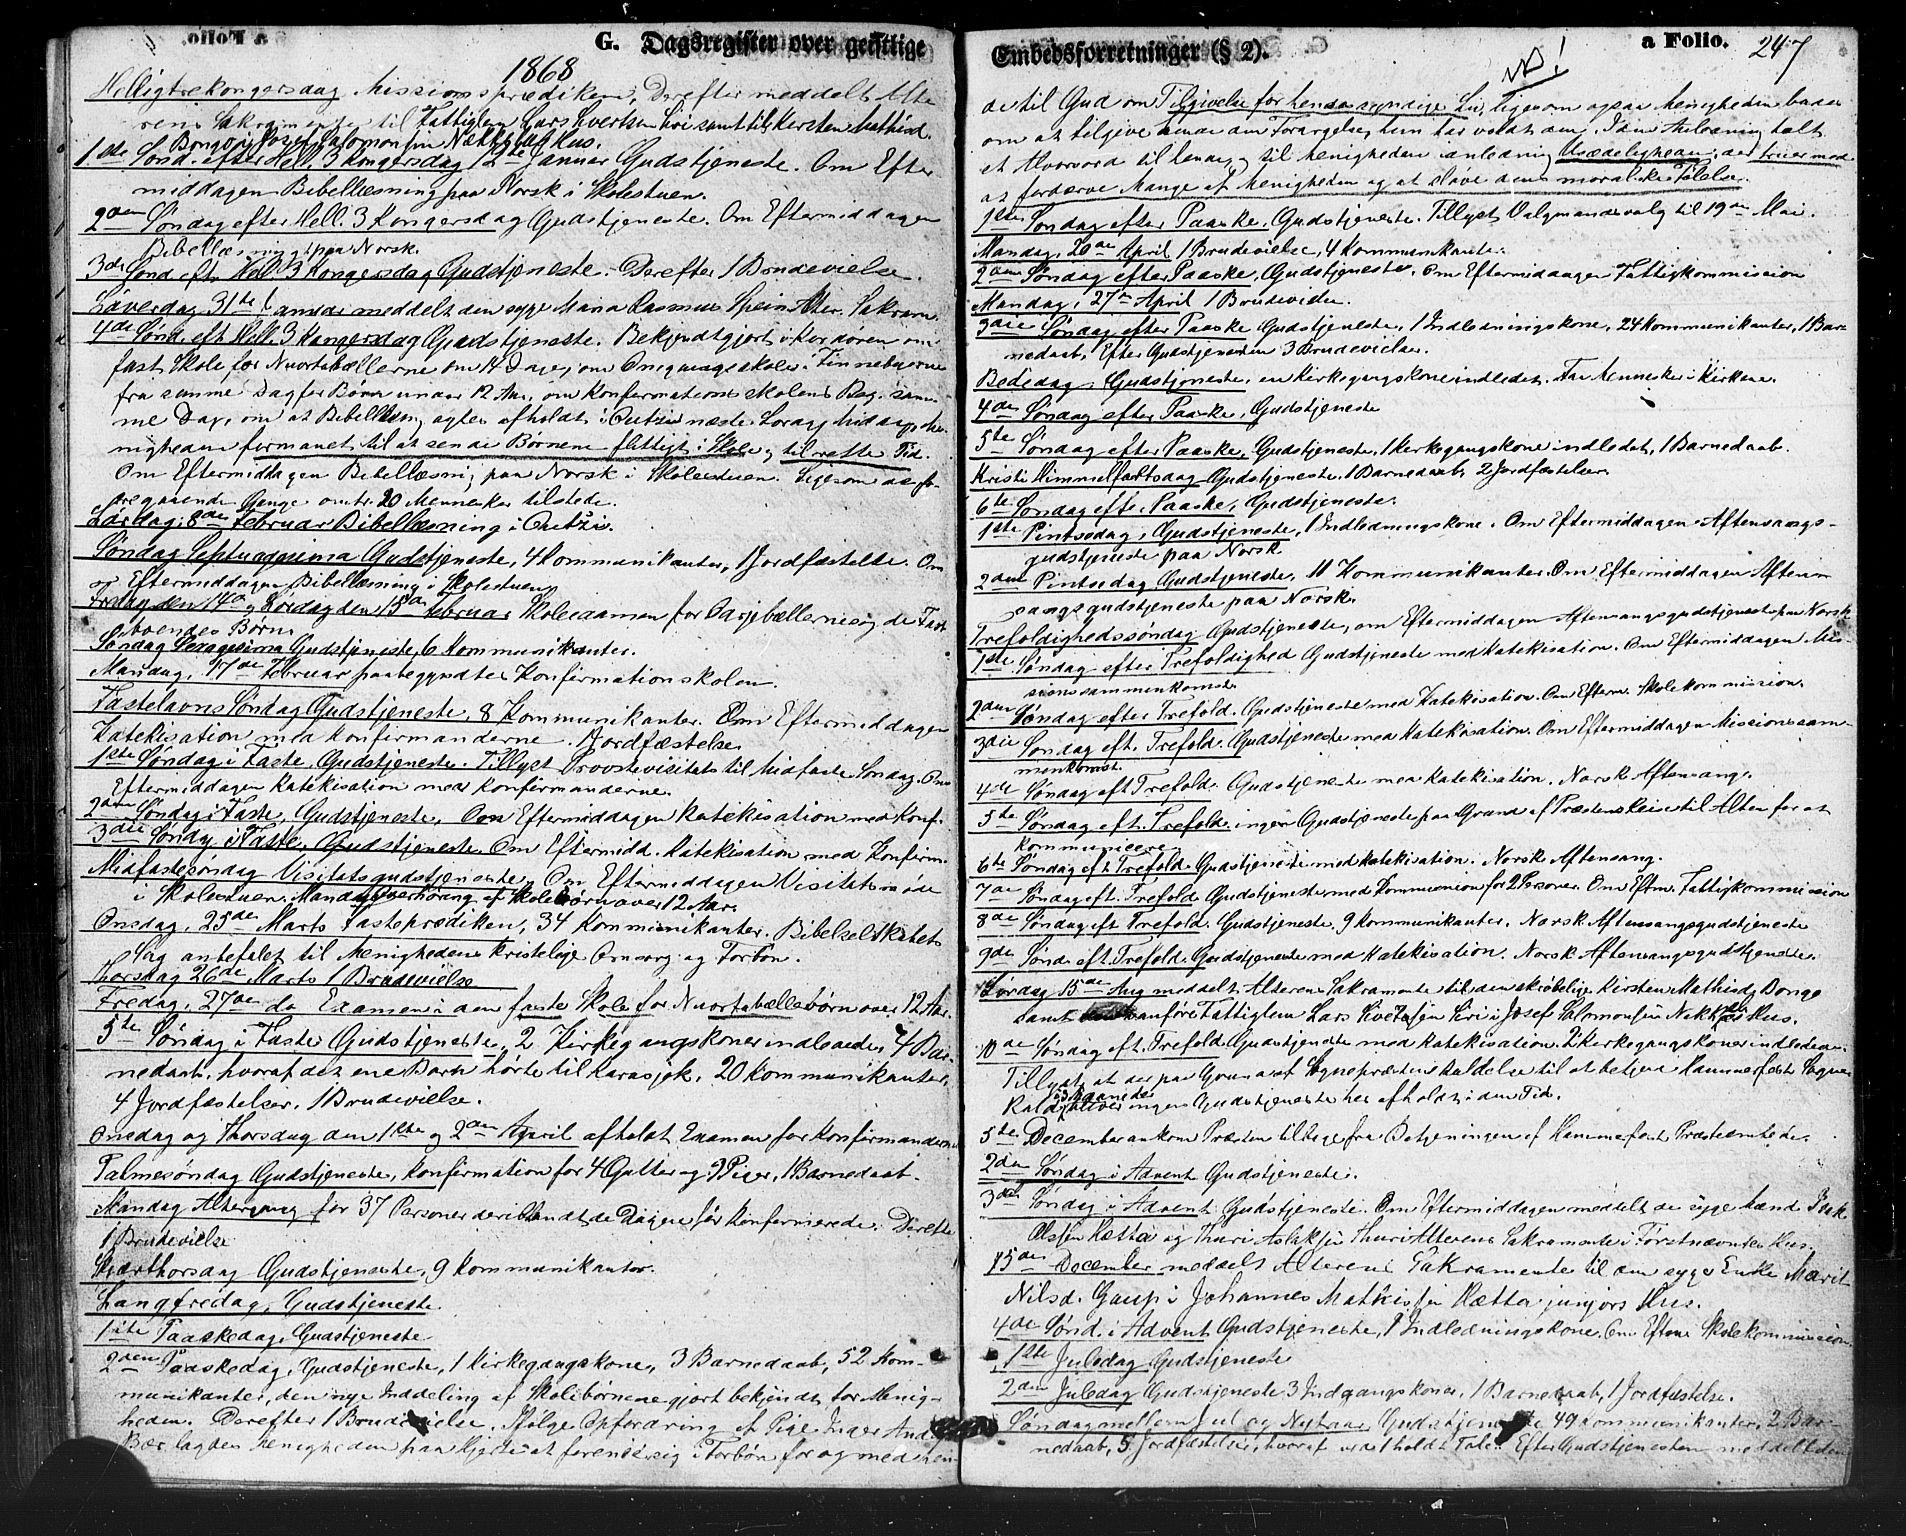 G. Dagsregister over geistlige
1868
Helligtrekongersdag Missionsprædiken, Derefter meddelt Alte
rens Sakramente til Fattiglem Lars Ivertsen Siri samt til Kirsten Mathisd.
Bongo i Josef Salomonsen Nækkjlas Hus.
1ste Sønd. efter Hell. 3 Kongersdag 12te Januar Gudstjeneste. Om Efter
middagen Bibellæsning paa Norsk i Skolestuen.
2den Søndag efter Hell. 3 Kongersdag Gudstjeneste. Om Eftermiddagen
Bibellæsning paa Norsk.
3die Sønd. eft. Hell. 3 Kongersdag Gudstjeneste. Derefter 1 Brudevielse.
Løverdag 31te Januar meddelt den syge Maria Rasmus Spein Alter. Sakram.
4de Sønd. eft. Hell. 3 Kongersdag Gudstjeneste. Bekjendtgjort i Kordøren om
fast Skole for Nuortabællerne om 14 Dage, om Omgangsskolen i Finnebyerne
fra samme Dag for Børn under 12 Aar, om Konfirmationsskolens Beg. sam-
me Dag, om at Bibellæsning agtes afholdt i Autzi næste Lørdag Middag, Me-
nigheden formanet til at sende Børnene flittigt i Skole og til rette Tid.
Om Eftermiddagen Bibellæsning paa Norsk i Skolestuen. Ligesom de fo-
regaaende Gange omtr. 20 Mennesker tilstede.
Lørdag 8de Februar Bibellæsning i Autzi.
Søndag Septuagesima Gudstjeneste, 4 Kommunikanter, 1 Jordfæstelse. Om
Eftermiddagen Bibellæsning i Skolestuen
Fredag den 14de og Lørdag den 15de Februar Skoleexamen for Oarjebællerne og de Fast
boendes Børn
Søndag Sexagesima Gudstjeneste, 6 Kommunikanter.
Mandag, 17de Februar paabegyndtes Konfirmationsskolen.
Fastelavns Søndag Gudstjeneste, 8 Kommunikanter. Om Eftermiddagen
Katekisation med Konfirmanderne. 1 Jordfæstelse
1ste Søndag i Faste, Gudstjeneste. Tillyst Provstevisitats til Midfaste Søndag. Om
Eftermiddagen Katekisation med Konfirmanderne.
2den Søndag i Faste, Gudstjeneste, Om Eftermiddagen Katekisation med Konf.
3die Søndag i Faste, Gudstjeneste. Om Eftermidd. Katekisation med Konfirm.
Midfastesøndag Visitatsgudstjeneste. Om Eftermiddagen Visitatsmøde
i Skolestuen. Mandag overhøring af Skolebørn over 12 Aar.
Onsdag, 25de Marts Fasteprædiken, 34 Kommunikanter. Bibelselskabets
Sag anbefalet til Menighedens kristelige Omsorg og Forbøn.
Thorsdag 26de Marts 1 Brudevielse
Fredag, 27de do Examen i den faste Skole for Nuortabællebørn over 12 Aar.
5te Søndag i Faste Gudstjeneste, 2 Kirkegangskoner indledede, 4 Bar-
nedaab, hvoraf det ene Barn hørte til Karasjok, 20 Kommunikanter,
4 Jordfæstelser, 1 Brudevielse.
Onsdag og Thorsdag den 1ste og 2den April afholdt Examen for Konfirmanderne
Palmesøndag Gudstjeneste, Konfirmation for 4 Gutter og 9 Piger, 1 Barnedaab.
Mandag Altergang for 37 Personer deriblandt de Dagen før Konfirmerede. Derefter
1 Brudevielse
Skjærthorsdag Gudstjeneste, 9 Kommunikanter.
Langfredag, Gudstjeneste.
1ste Paaskedag, Gudstjeneste
2den Paaskedag, Gudstjeneste, 1 Kirkegangskone, 3 Barnedaab, 52 Kom-
munikanter, den nye Inddeling af Skolebørnene gjort bekjendt for Menig-
heden. Derefter 1 Brudevielse. Ifølge Opfordring af Pige Inger And.
Bær lagdes Menigheden paa Hjerte at forene sig i Forbøn for og med hen-
Embedsforretninger (§ 2).
a Folio. 247
NB!
de til Gud om Tilgivelse for hendes syndige Liv, ligesom ogsaa Menigheden bades
om at tilgive hende den Forargelse, hun har voldt den. I den Anledning talt
et Alvorsord til hende og til Menigheden i anledning Usædeligheden, der truer med
at fordærve Mange af Menigheden og at sløve dens moralske Følelse.
1ste Søndag efter Paaske, Gudstjeneste. Tillyst Valgmandsvalg til 19de Mai.
Mandag, 20de April 1 Brudevielse, 4 Kommunikanter.
2den Søndag efter Paaske, Gudstjeneste. Om Eftermiddagen Fattigkommission
Mandag, 27de April 1 Brudevielse.
3die Søndag efter Paaske Gudstjeneste, 1 Indledningskone, 24 Kommunikanter, 1 Bar-
nedaab, Efter Gudstjenesten 3 Brudevielser.
Bededag, Gudstjeneste, en Kirkegangskone indledet. Faa Mennesker i Kirken.
4de Søndag efter Paaske, Gudstjeneste
5te Søndag efter Paaske, Gudstjeneste, 1 Kirkegangskone indledet, 1 Barnedaab.
Kristi Himmelfartsdag Gudstjeneste, 1 Barnedaab, 2 Jordfæstelser.
6te Søndag efter Paaske, Gudstjeneste.
1ste Pintsedag, Gudstjeneste, 1 Indledningskone. Om Eftermiddagen Aftensangs-
gudstjeneste paa Norsk
2den Pintsedag Gudstjeneste, 11 Kommunikanter. Om Eftermiddagen Aften-
sangsgudstjeneste paa Norsk.
Trefoldighedssøndag Gudstjeneste, om Eftermiddagen Aftensangsgudstjeneste paa Norsk
1ste Søndag efter Trefoldighed Gudstjeneste med Katekisation. Om Eftermiddagen Mis-
sionssammenkomst
2den Søndag efter Trefold. Gudstjeneste med Katekisation. Om Efterm. Skolekommission.
3die Søndag eft. Trefold. Gudstjeneste med Katekisation. Om Eftermiddagen Missionssam-
menkomst.
4de Søndag eft Trefold. Gudstjeneste med Katekisation. Norsk Aftensang.
5te Søndag eft. Trefold. ingen Gudstjeneste paa Grund af Præstens Reise til Alten for at
kommunicere
6te Søndag eft Trefold. Gudstjeneste med Katekisation. Norsk Aftensang.
7de Søndag eft. Trefold Gudstjeneste med Kommunion for 2 Personer. Om Eftm. Fattigkommission
8de Søndag eft Trefold. Gudstjeneste, 9 Kommunikanter. Norsk Aftensangsgudstjeneste
9de Sønd. eft. Trefold. Gudstjeneste med Katekisation. Norsk Aftensangsgudstjeneste.
Lørdag 15de Aug meddelt Alterens Sakramente til den skrøbelige Kirsten Mathisd. Bongo
samt anføre Fattiglem Lars Ivertsen Siri i Josef Salomonsen Nækkjlas Hus.
10de Søndag eft. Trefold Gudstjeneste med Katekisation. 2 Kirkegangskoner indledede.
Tillyst, at der paa Grund af Sognepræstens Kaldelse til at betjene Hammerfest Sogne-
kald bliver ingen Gudstjeneste her afholdt i den Tid.
5te December ankom Præsten tilbage fra Betjeningen af Hammerfest Præsteembede.
2den Søndag i Advent Gudstjeneste.
3die Søndag i Advent Gudstjeneste. Om Eftermiddagen meddelt de syge Mænd Isak
Olsen Hætta og Thuri Aslaksen Thuri Alterens Sakramente i Førstnævntes Hus.
15de December meddelt Alterens Sakramente til den syge Enke Marit
Nilsd. Gaup i Johannes Mathisen Hætta juniors Hus.
4de Sønd. i Advent Gudstjeneste, 1 Indledningskone. Om Efterm Skolekommission.
1ste Juledag Gudstjeneste
2den Juledag Gudstjeneste 3 Indgangskoner, 1 Barnedaab, 1 Jordfæstelse.
Søndag mellem Jul og Nytaar, Gudstjeneste 49 Kommunikanter, 2 Bar-
nedaab, 5 Jordfæstelser, hvoraf ved 1 holdt Tale. Efter Gudstjenesten meddelt den